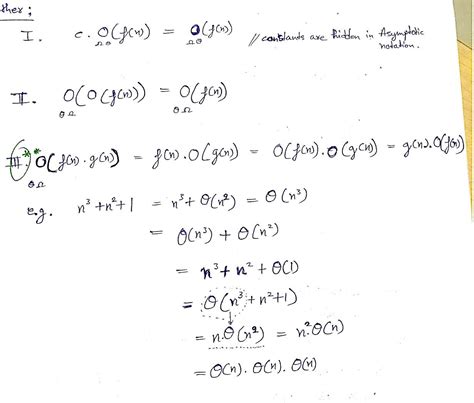 ther ;
I. c. O(f(n)) = O(f(n)) // constants are hidden in Asymptotic
Ω Θ Ω Θ notation.
II. O(O(f(n))) = O(f(n))
Θ Ω Θ Ω
III. ** O(f(n) . g(n)) = f(n) . O(g(n)) = O(f(n)) . O(g(n)) = g(n) . O(f(n))
Θ Ω
e.g. n³ + n² + 1 = n³ + Θ(n²) = Θ(n³)
= Θ(n³) + Θ(n²)
= n³ + n² + Θ(1)
= Θ(n³ + n² + 1)
= n.Θ(n²) = n²Θ(n)
= Θ(n) . Θ(n) . Θ(n)